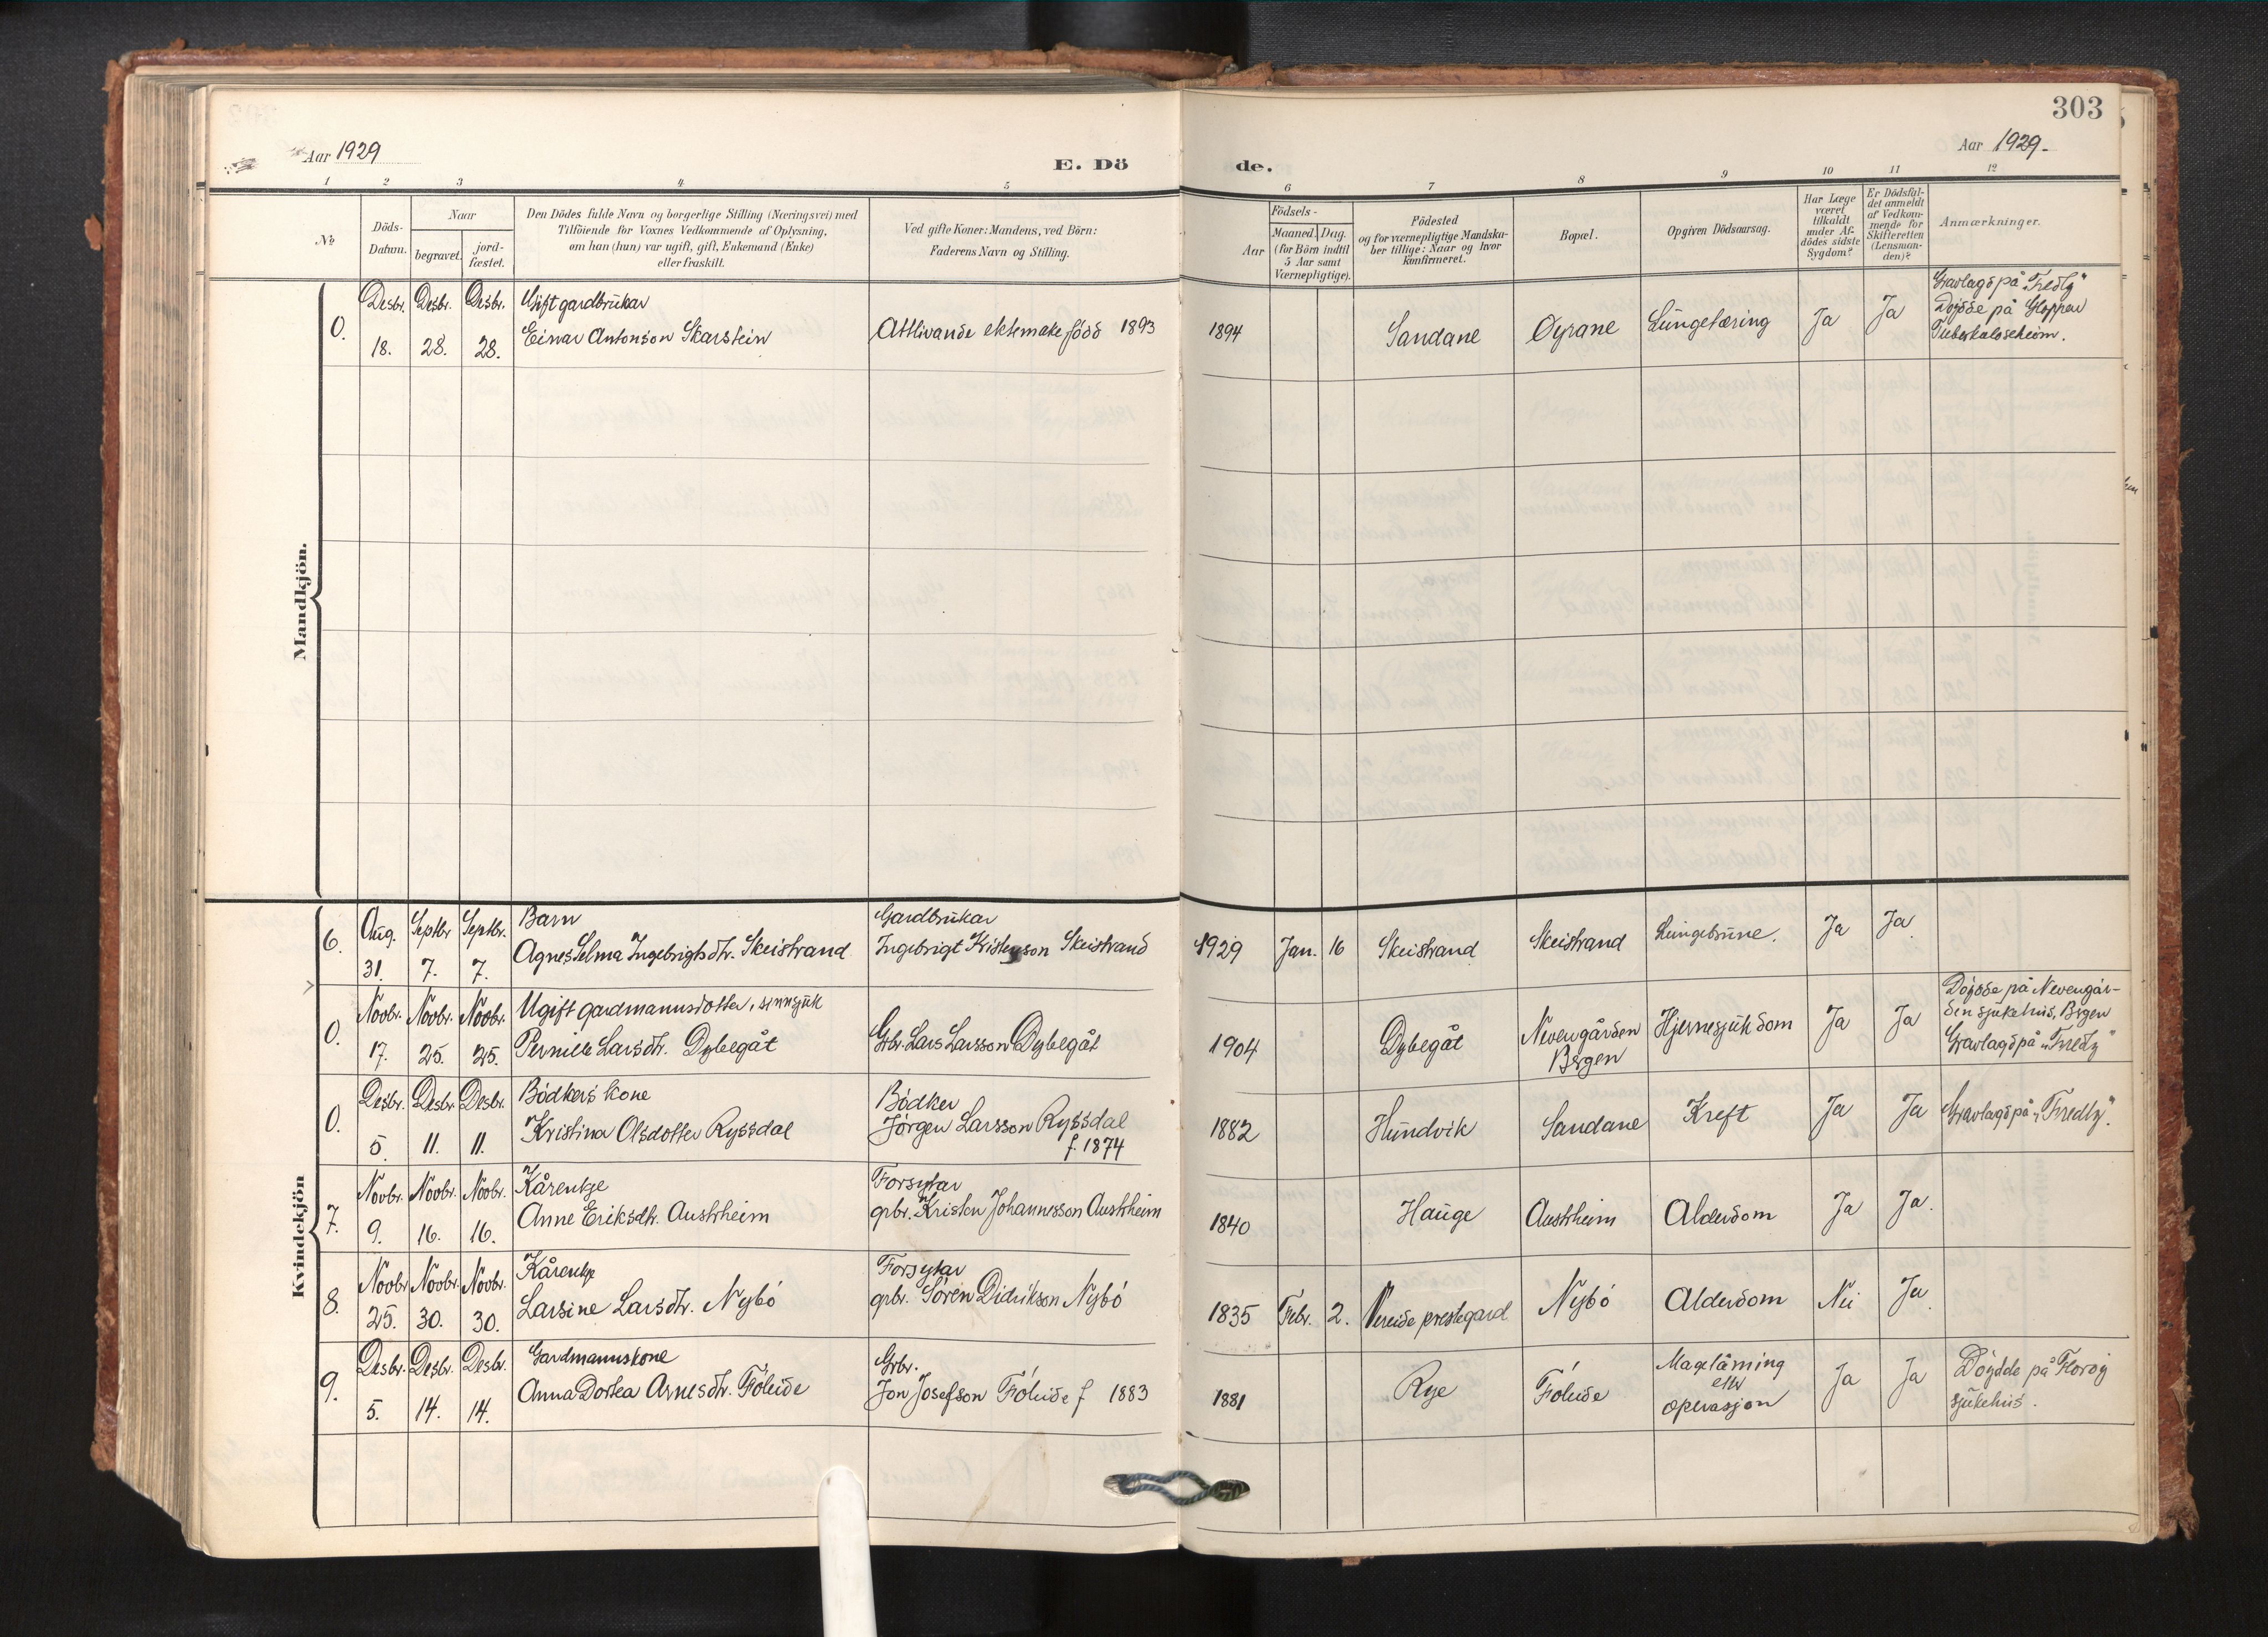 303
Aar 1929
E. Dö
de.
Aar 1929-
1 2 3 4 5 6 7 8 9 10 11 12
№
Döds-
Datum.
Naar
begravet.
jord-
fæstet.
Den Dödes fulde Navn og borgerlige Stilling (Næringsvei) med
Tilföiende for Voxnes Vedkommende af Oplysning,
om han (hun) var ugift, gift, Enkemand (Enke)
eller fraskilt.
Ved gifte Koner: Mandens, ved Börn:
Faderens Navn og Stilling.
Födsels-
Aar
Maaned.
Dag.
(for Börn indtil
5 Aar samt
Værnepligtige).
Födested
og for værnepligtige Mandska-
ber tillige: Naar og hvor
konfirmeret.
Bopæl.
Opgiven Dödsaarsag.
Har Læge
været
tilkaldt
under Af-
dödes sidste
Sygdom?
Er Dödsfal-
det anmeldt
af Vedkom-
mende for
Skifteretten
(Lensman-
den)?
Anmærkninger.
Mandkjön.
0.
Desbr. 18.
Desbr. 28.
Desbr. 28.
Gift gardbrukar
Einar Antonson Skarstein
Attlivande ektemake född 1893
1894
Sandane
Öyrane
Lungetæring
Ja
Ja
Gravlagd på "Fredly"
Döydde på Gloppen
Tuberkuloseheim.
Kvindekjön
6.
Aug. 31.
Septbr 7.
Septbr. 7.
Barn
Agnes Selma Ingebrigtsdtr. Skeistrand
Gardbrukar
Ingebrigt Kristenson Skeistrand
1929
Jan.
16
Skeistrand
Skeistrand
Lungebrune.
Ja
Ja
0.
Novbr. 17.
Novbr. 25.
Novbr. 25.
Ugift gardmannsdotter, sinnsjuk
Pernille Larsdtr. Dybegåt
Gbr. Lars Larsson Dybegåt
1904
Dybegåt
Nevengården
Bergen
Hjernesjukdom
Ja
Ja
Döydde på Nevengår-
den sjukehus, Bergen
Gravlagd på "Fredly"
0.
Desbr. 5.
Desbr. 11.
Desbr. 11.
Bödkers kone
Kristina Olsdotter Ryssdal
Bödker
Jörgen Larsson Ryssdal
f. 1874
1882
Hundvik
Sandane
Kreft
Ja
Ja
Gravlagd på "Fredly".
7.
Novbr. 9.
Novbr. 16.
Novbr. 16.
Kårenkje
Anne Eriksdtr. Austrheim
Forsytar
gbr. Kristen Johannesson Austrheim
1840
Hauge
Austrheim
Alderdom
Ja
Ja.
8.
Novbr 25.
Novbr. 30.
Novbr. 30.
Kårenkje
Larsine Larsdtr. Nybö
Forsytar
gbr. Sören Didrikson Nybö
1835
Febr.
2.
Vereide prestegard
Nybö
Alderdom
Nei
Ja
9.
Desbr. 5.
Desbr. 14.
Desbr. 14.
Gardmannskone
Anna Dortea Arnesdtr. Föleide
Gbr.
Jon Josefson Föleide f 1883
1881
Rye
Föleide
etter
operasjon
Ja
Ja
Döydde på Floröy
sjukehus.